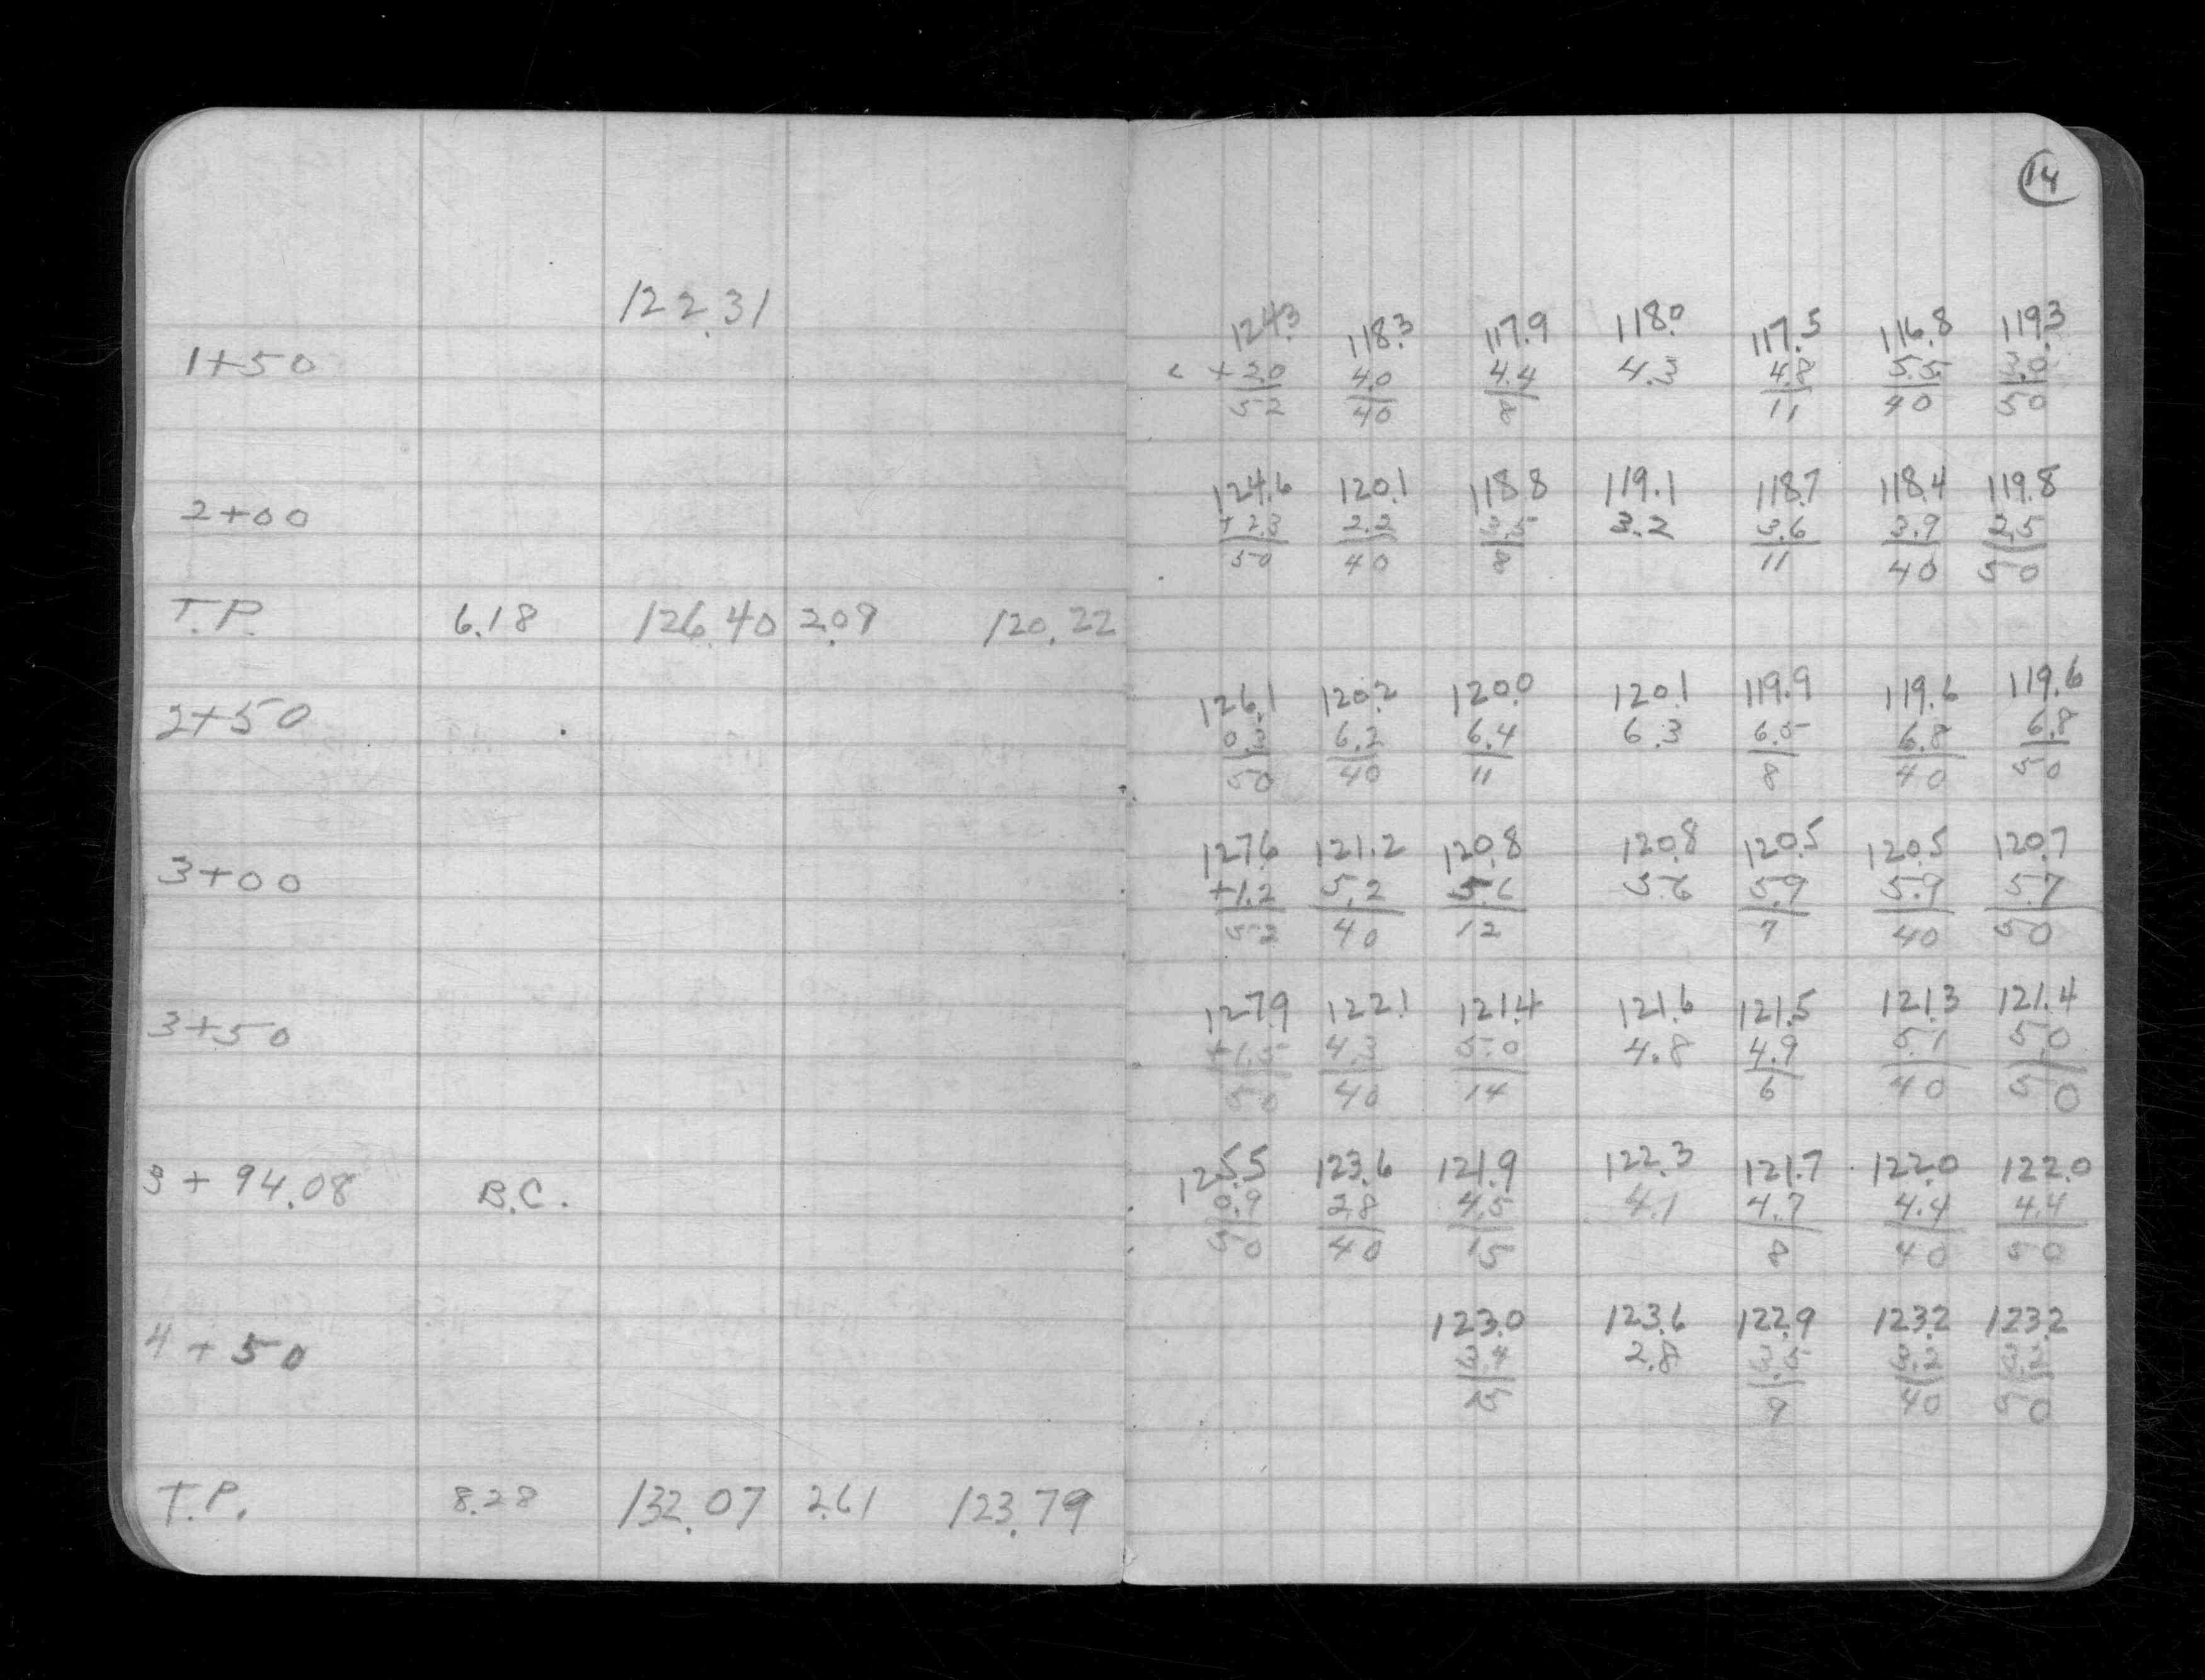 14
122.31
124.3 118.3 117.9 118.0 117.5 116.8 119.3
1+50
+2.0 4.0 4.4 4.3 4.8 5.5 3.0
52 40 8 11 40 50
124.6 120.1 118.8 119.1 118.7 118.4 119.8
2+00
+2.3 2.2 3.5 3.2 3.6 3.9 2.5
50 40 8 11 40 50
T.P. 6.18 126.40 2.09 120.22
126.1 120.2 120.0 120.1 119.9 119.6 119.6
2+50
0.3 6.2 6.4 6.3 6.5 6.8 6.8
50 40 11 8 40 50
127.6 121.2 120.8 120.8 120.5 120.5 120.7
3+00
+1.2 5.2 5.6 5.6 5.9 5.9 5.7
52 40 12 7 40 50
127.9 122.1 121.4 121.6 121.5 121.3 121.4
3+50
+1.5 4.3 5.0 4.8 4.9 5.1 5.0
50 40 14 6 40 50
125.5 123.6 121.9 122.3 121.7 122.0 122.0
3+94.08 B.C.
0.9 2.8 4.5 4.1 4.7 4.4 4.4
50 40 15 8 40 50
123.0 123.6 122.9 123.2 123.2
4+50
3.4 2.8 3.5 3.2 3.2
9 40 50
T.P. 8.28 132.07 2.61 123.79